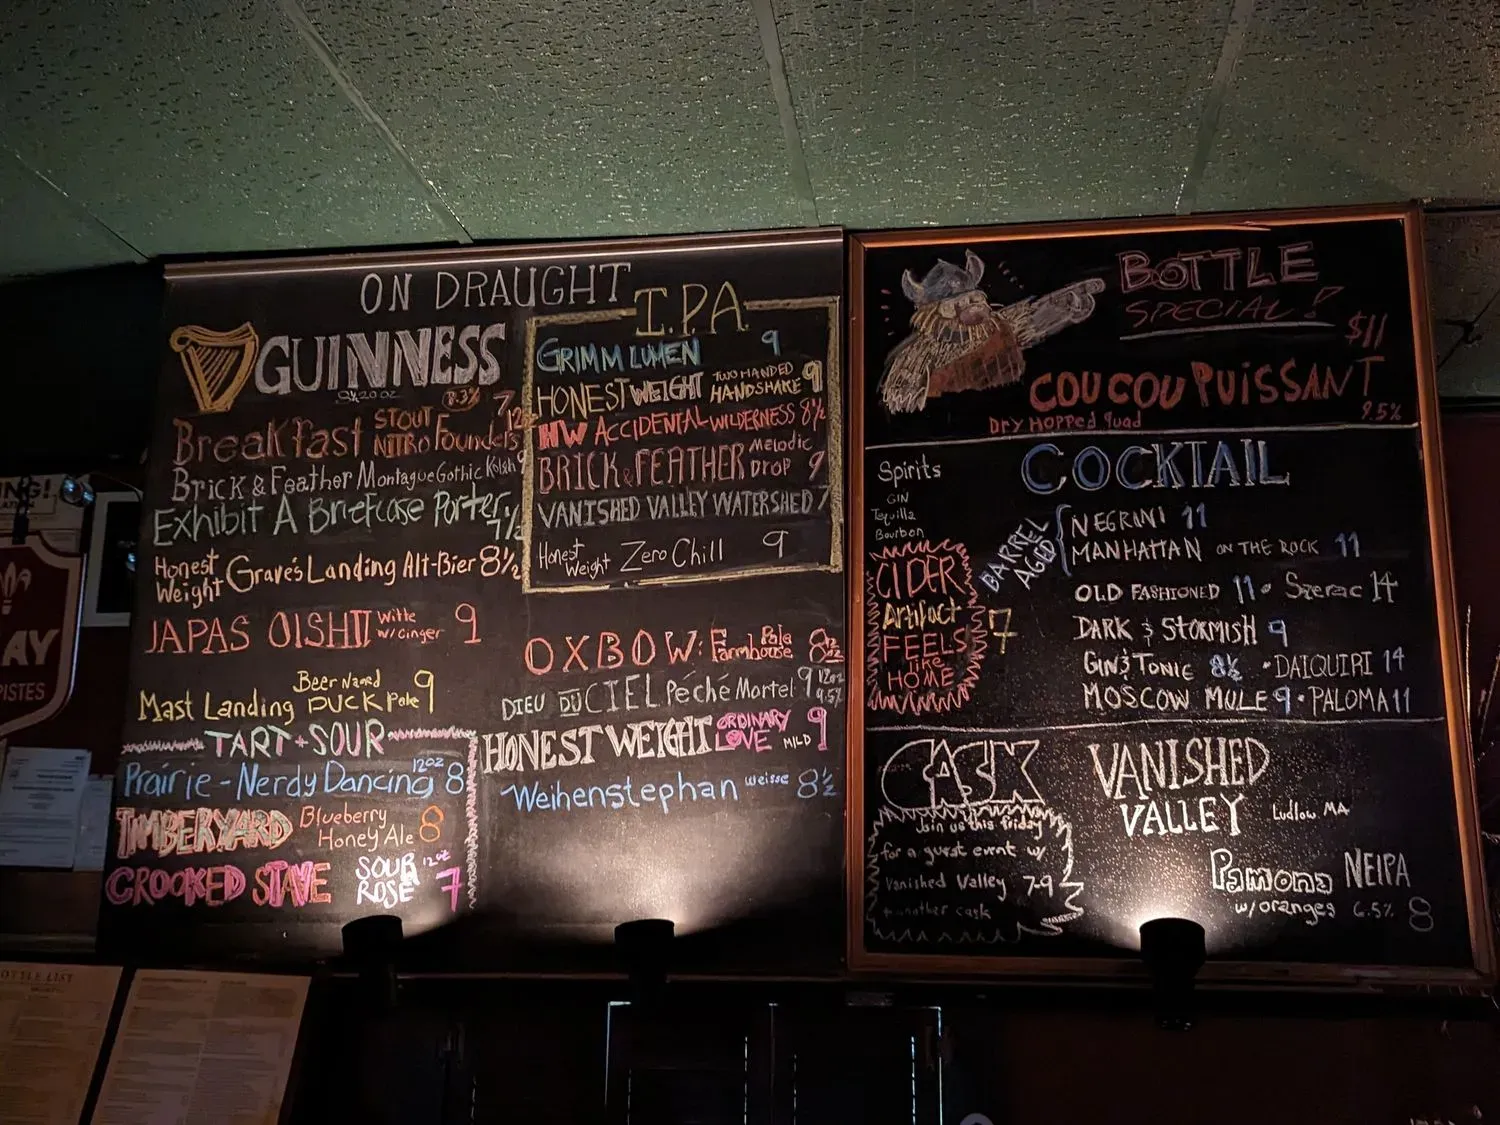 ON DRAUGHT
GUINNESS
20 OZ
Breakfast STOUT NITRO Founders 8.3% 7 12oz
Brick & Feather Montague Gothic Kolsh 9
Exhibit A Briefcase Porter 7½
Honest Weight Grave's Landing Alt-Bier 8½
JAPAS OISHII Witte w/Ginger 9
Mast Landing Beer Named DUCK Pale 9
TART + SOUR
Prairie - Nerdy Dancing 12oz 8
TIMBERYARD Blueberry Honey Ale 8
CROOKED STAVE SOUR ROSÉ 12oz 7
I.P.A
GRIMM LUMEN 9
HONEST WEIGHT TWO HANDED HANDSHAKE 9
HW ACCIDENTAL WILDERNESS 8½
BRICK & FEATHER Melodic DROP 9
VANISHED VALLEY WATERSHED 7
Honest Weight Zero Chill 9
OXBOW: Pale Farmhouse 8½
DIEU DU CIEL Péché Mortel 9 12oz 9.5%
HONEST WEIGHT ORDINARY LOVE MILD 9
Weihenstephan weisse 8½
BOTTLE
SPECIAL!
$11
COUCOU PUISSANT
DRY HOPPED quad 9.5%
Spirits
GIN
Tequilla
Bourbon
CIDER
Artifact
FEELS
like
HOME
7
COCKTAIL
BARREL AGED
NEGRINI 11
MANHATTAN ON THE ROCK 11
OLD FASHIONED 11 • Szerac 14
DARK & STORMISH 9
GIN & TONIC 8½ • DAIQUIRI 14
MOSCOW MULE 9 • PALOMA 11
CASK
Join us this friday
for a guest event w/
Vanished Valley 7-9
+ another cask
VANISHED
VALLEY Ludlow MA
Pamona NEIPA
w/oranges 6.5% 8
AY
PISTES